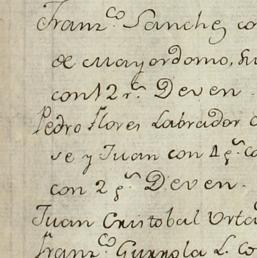 Franz.co Sanchez co
de Mayordomo, su
con 12 r.s Deven.
Pedro Flores Labrador c
se y Juan con 4 p.s co
con 2 p.s Deven.
Juan Cristobal Urta
Franz.co Gurrola L. co